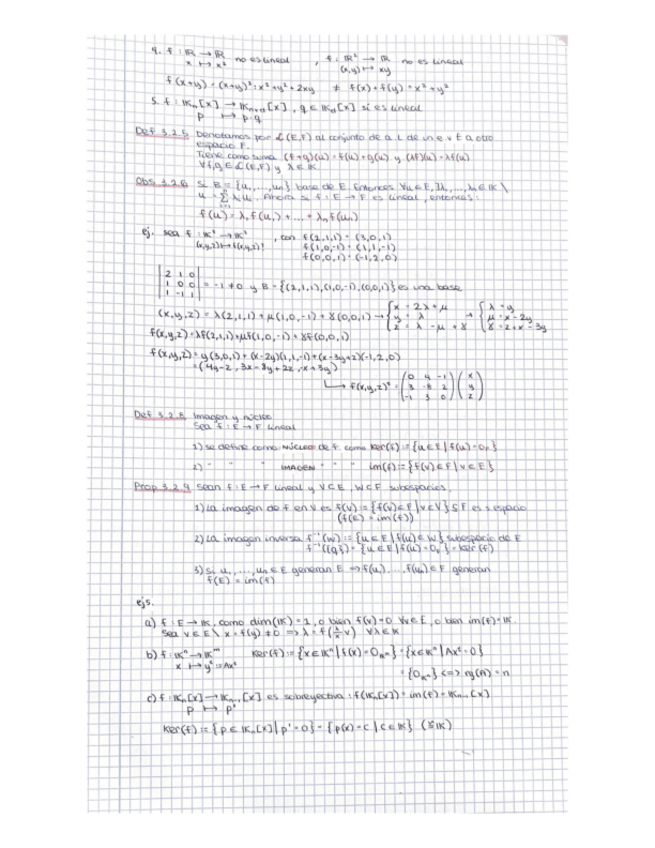 4. f: ℝ → ℝ no es lineal , f: ℝ² → ℝ no es lineal
x ↦ x² (x,y) ↦ xy
f(x+y) = (x+y)² = x²+y²+2xy ≠ f(x)+f(y) = x²+y²
5. f: 𝕂ₙ[x] → 𝕂ₙ₊d[x], q ∈ 𝕂d[x] sí es lineal
p ↦ p·q
Def 3.2.5 Denotamos por ℒ(E,F) al conjunto de a.L de un e.v E a otro
espacio F.
Tiene como suma (f+g)(u) = f(u)+g(u) y (λf)(u) = λf(u)
∀f,g ∈ ℒ(E,F) y λ ∈ 𝕂
Obs 3.2.6 Si B = {u₁,...,uₙ} base de E. Entonces ∀u ∈ E, ∃λ₁,...,λₙ ∈ 𝕂 \
u = Σ λᵢuᵢ. Ahora si f: E → F es lineal, entonces:
f(u) = λ₁f(u₁) + ... + λₙf(uₙ)
ej. sea f: 𝕂³ → 𝕂³ , con f(2,1,1) = (3,0,1)
(x,y,z) ↦ f(x,y,z) f(1,0,-1) = (1,1,-1)
f(0,0,1) = (-1,2,0)
|2 1 0|
|1 0 0| = -1 ≠ 0 y B = {(2,1,1),(1,0,-1),(0,0,1)} es una base
|1 -1 1|
(x,y,z) = λ(2,1,1) + μ(1,0,-1) + γ(0,0,1) → { x = 2λ+μ → { λ = y
y = λ μ = x-2y
z = λ-μ+γ γ = z+x-3y
f(x,y,z) = λf(2,1,1) + μf(1,0,-1) + γf(0,0,1)
f(x,y,z) = y(3,0,1) + (x-2y)(1,1,-1) + (x-3y+z)(-1,2,0)
= (4y-z, 3x-8y+2z, -x+3y)
↳ f(x,y,z) = (0 4 -1) (x)
(3 -8 2) (y)
(-1 3 0) (z)
Def 3.2.8 Imagen y núcleo
Sea f: E → F lineal
1) se define como NÚCLEO de f como ker(f) := {u ∈ E | f(u) = 0F}
2) " " " IMAGEN " " " im(f) := {f(v) ∈ F | v ∈ E}
Prop 3.2.9 Sean f: E → F lineal y V ⊂ E, W ⊂ F subespacios.
1) La imagen de f en V es f(V) := {f(v) ∈ F | v ∈ V} ⊆ F es sespacio
(f(E) = im(f))
2) La imagen inversa f⁻¹(W) := {u ∈ E | f(u) ∈ W} subespacio de E
f⁻¹({0F}) = {u ∈ E | f(u) = 0F} = ker(f)
3) Si u₁,...,uₙ ∈ E generan E ⇒ f(u₁),...,f(uₙ) ∈ F generan
f(E) = im(f)
ejs.
a) f: E → 𝕂, como dim(𝕂) = 1, o bien f(v) = 0 ∀v ∈ E, o bien im(f) = 𝕂.
Sea v ∈ E \ x = f(y) ≠ 0 ⇒ λ = f(λ/x v) ∀λ ∈ 𝕂
b) f: 𝕂ⁿ → 𝕂ᵐ ker(f) := {x ∈ 𝕂ⁿ | f(x) = 0𝕂ᵐ} = {x ∈ 𝕂ⁿ | Axᵗ = 0}
x ↦ yᵗ = Axᵗ = {0𝕂ⁿ} <=> rg(A) = n
c) f: 𝕂ₙ[x] → 𝕂ₙ₋₁[x] es sobreyectiva: f(𝕂ₙ[x]) = im(f) = 𝕂ₙ₋₁[x]
p ↦ p'
ker(f) := {p ∈ 𝕂ₙ[x] | p' = 0} = {p(x) = c | c ∈ 𝕂} (≅ 𝕂)